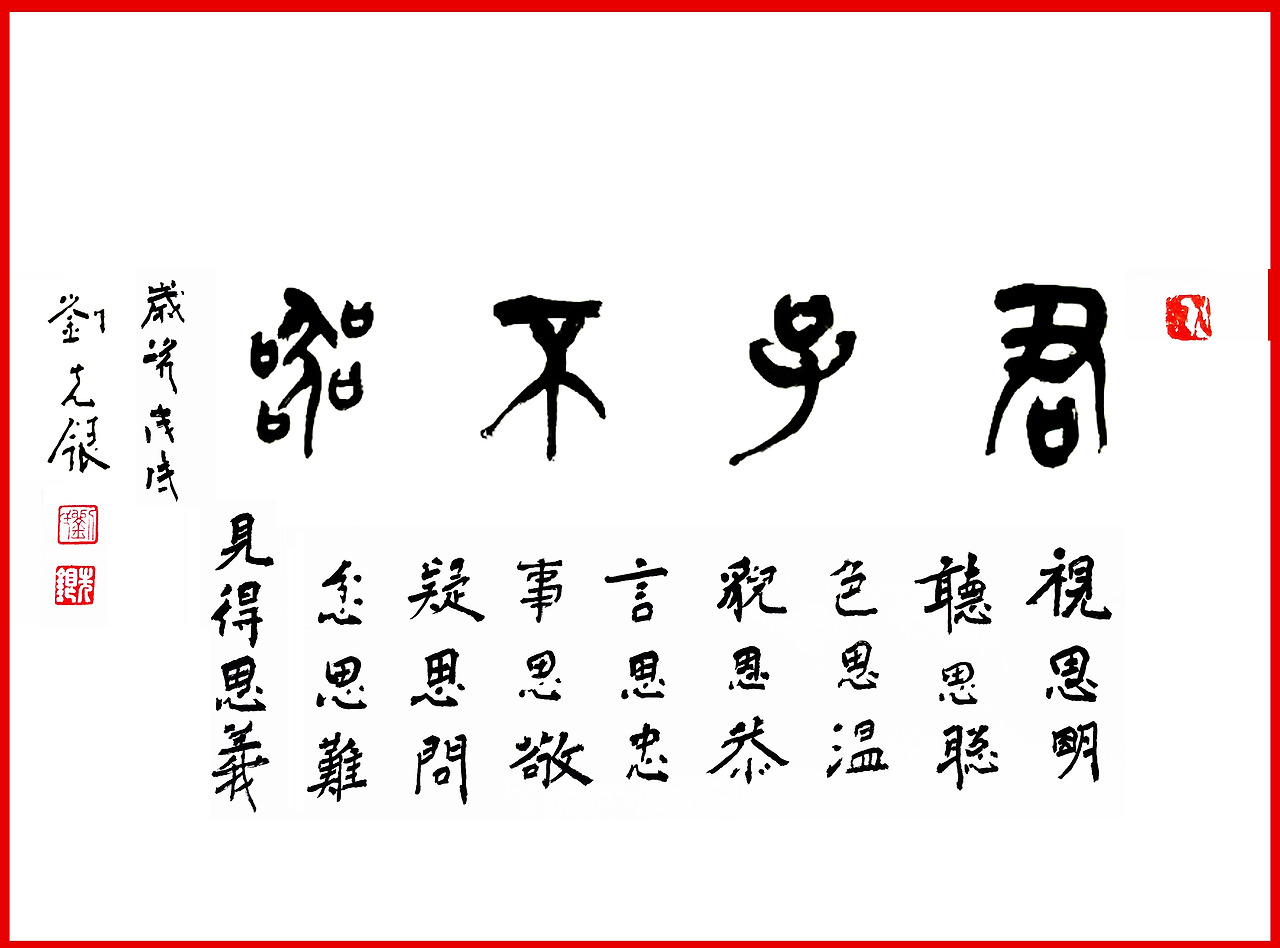 君子不器
視思明
聽思聰
色思温
貌思恭
言思忠
事思敬
疑思問
忿思難
見得思義
歲戊戌
劉先銀
劉
先銀